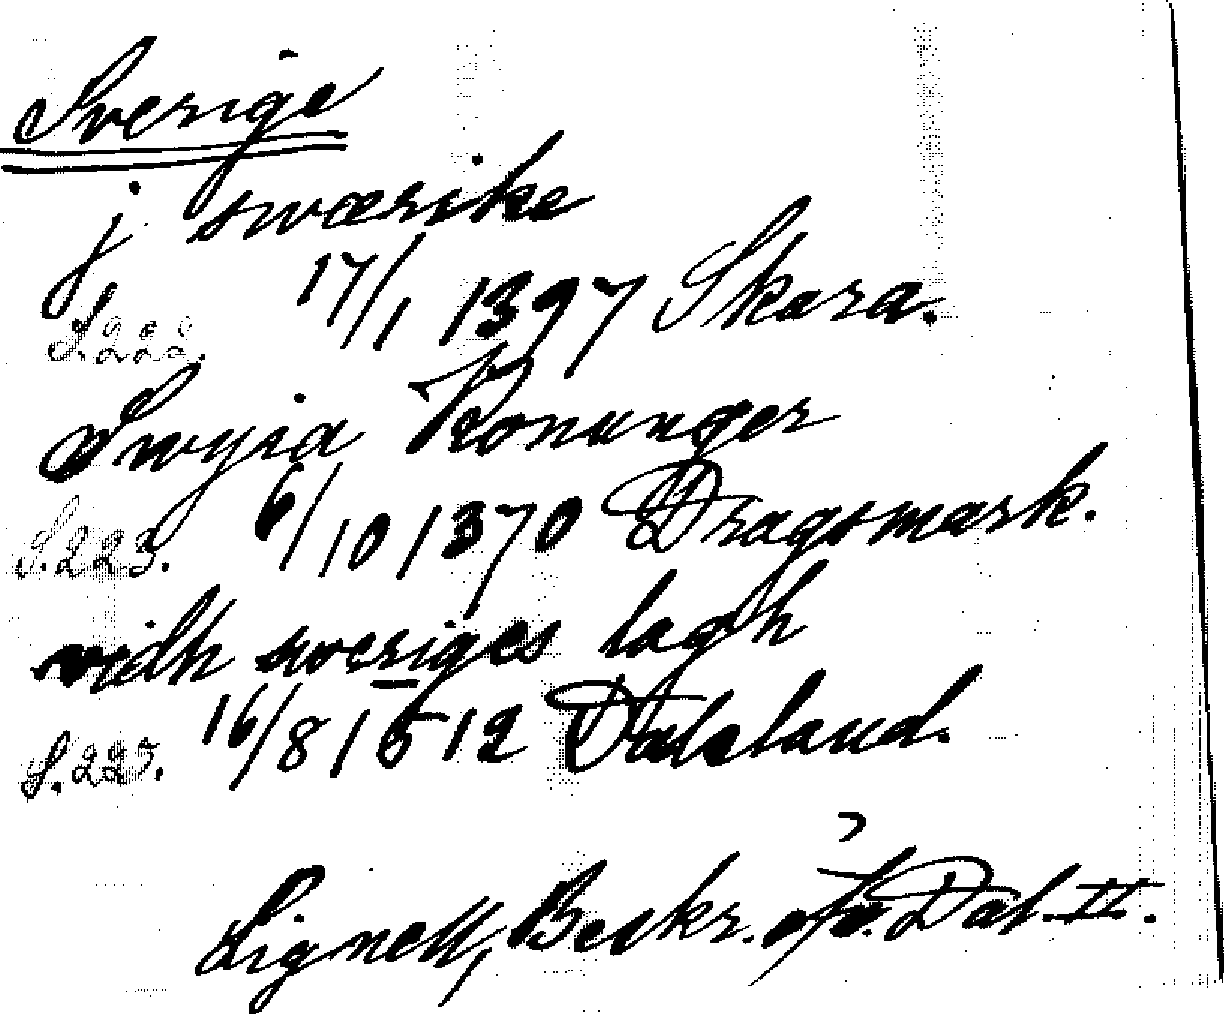 Sverige
j swærike
17/1 1397 Skara.
S. 222.
Swyia Konunger
S. 223. 6/10 1370 Dragsmark.
vidh sweriges lagh
S. 225. 16/8 1512 Dalsland.
Lignell, Beskr. öfv. Dal. II.